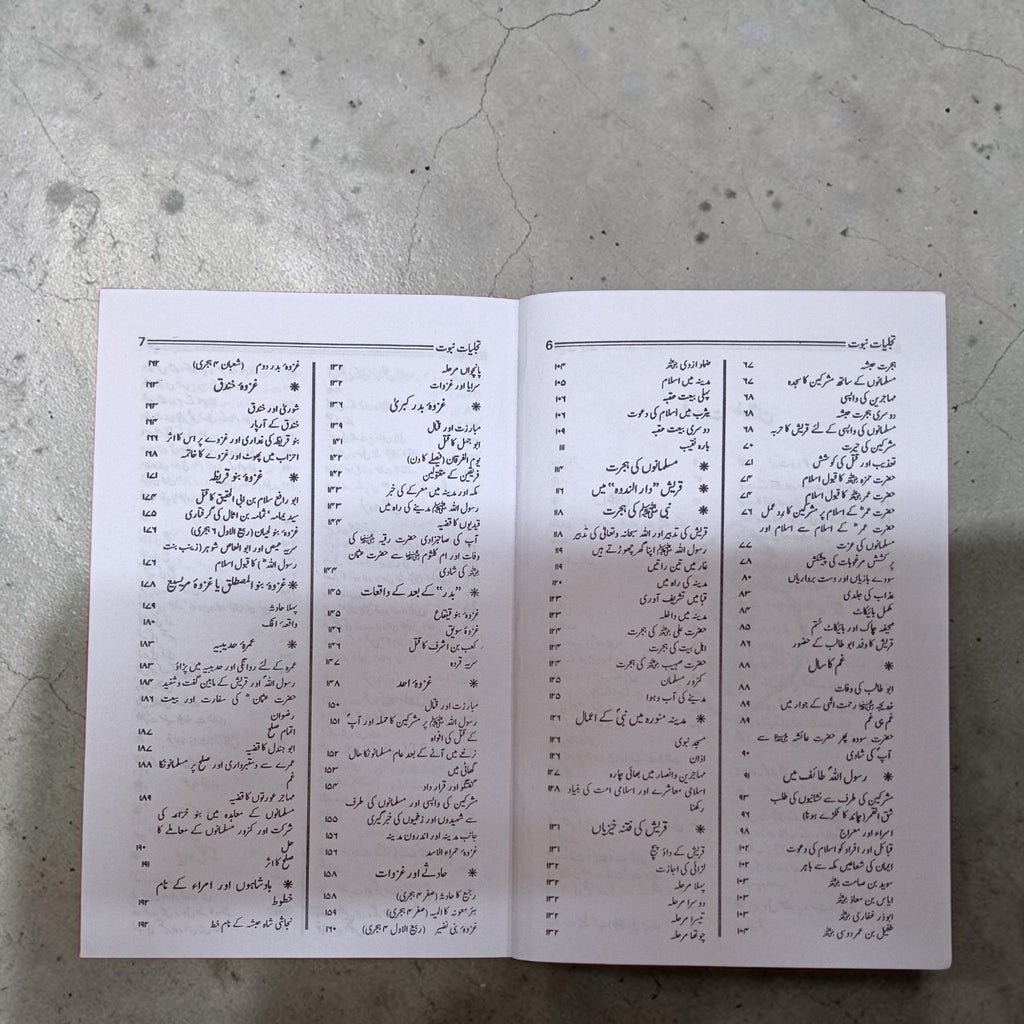 تجلیات نبوت 6
ہجرت حبشہ ۶۷
مسلمانوں کے ساتھ مشرکین کا سجدہ ۶۷
مہاجرین کی واپسی ۶۸
دوسری ہجرت حبشہ ۶۸
مسلمانوں کی واپسی کے لئے قریش کا حربہ ۶۸
مشرکین کی حیرت ۷۰
تعذیب اور قتل کی کوشش ۷۱
حضرت حمزہ ؓ کا قبول اسلام ۷۴
حضرت عمر ؓ کا قبول اسلام ۷۴
حضرت عمر ؓ کے اسلام پر مشرکین کا رد عمل ۷۶
حضرت عمر ؓ کے اسلام سے اسلام اور
مسلمانوں کی عزت ۷۷
پرکشش مرغوبات کی پیشکش ۷۸
سودے بازیاں اور دست برداریاں ۸۰
عذاب کی جلدی ۸۳
مکمل بائیکاٹ ۸۴
صحیفہ چاک اور بائیکاٹ ختم ۸۵
قریش کا وفد ابو طالب کے حضور ۸۶
✳ غم کا سال ۸۸
ابو طالب کی وفات ۸۸
خدیجہ ؓ رحمت الٰہی کے جوار میں ۸۹
غم ہی غم ۸۹
حضرت سودہ پھر حضرت عائشہ ؓ سے
آپؐ کی شادی ۹۰
✳ رسول اللہؐ طائف میں ۹۱
مشرکین کی طرف سے نشانیوں کی طلب ۹۳
شق القمر (چاند کا ٹکڑے ہونا) ۹۶
اسراء اور معراج ۹۸
قبائل اور افراد کو اسلام کی دعوت ۱۰۲
ایمان کی شعاعیں مکہ سے باہر ۱۰۲
سوید بن صامت ؓ ۱۰۳
ایاس بن معاذ ؓ ۱۰۳
ابوذر غفاری ؓ ۱۰۳
طفیل بن عمرو دوسی ؓ ۱۰۴
ضماد ازدی ؓ ۱۰۴
مدینہ میں اسلام ۱۰۵
پہلی بیعت عقبہ ۱۰۶
یثرب میں اسلام کی دعوت ۱۰۶
دوسری بیعت عقبہ ۱۰۹
بارہ نقیب ۱۱۱
✳ مسلمانوں کی ہجرت ۱۱۴
✳ قریش "دار الندوہ" میں ۱۱۶
✳ نبی ﷺ کی ہجرت ۱۱۸
قریش کی تدبیر اور اللہ سبحانہ وتعالیٰ کی تدبیر ۱۱۸
رسول اللہ ﷺ اپنا گھر چھوڑتے ہیں ۱۱۹
غار میں تین راتیں ۱۱۹
مدینہ کی راہ میں ۱۲۰
قبا میں تشریف آوری ۱۲۳
مدینہ میں داخلہ ۱۲۳
حضرت علی ؓ کی ہجرت ۱۲۴
اہل بیت کی ہجرت ۱۲۴
حضرت صہیب ؓ کی ہجرت ۱۲۴
کمزور مسلمان ۱۲۵
مدینے کی آب و ہوا ۱۲۵
✳ مدینہ منورہ میں نبیؐ کے اعمال ۱۲۶
مسجد نبوی ۱۲۶
اذان ۱۲۶
مہاجرین وانصار میں بھائی چارہ ۱۲۷
اسلامی معاشرے اور اسلامی امت کی بنیاد ۱۲۸
رکھنا
✳ قریش کی فتنہ خیزیاں ۱۳۱
قریش کے داؤ پیچ ۱۳۱
لڑائی کی اجازت ۱۳۲
پہلا مرحلہ ۱۳۲
دوسرا مرحلہ ۱۳۲
تیسرا مرحلہ ۱۳۲
چوتھا مرحلہ ۱۳۲
تجلیات نبوت 7
پانچواں مرحلہ ۱۳۲
سرایا اور غزوات ۱۳۲
✳ غزوۂ بدر کبریٰ ۱۳۶
مبارزت اور قتال ۱۳۹
ابو جہل کا قتل ۱۴۱
یوم الفرقان (فیصلے کا دن) ۱۴۲
فریقین کے مقتولین ۱۴۲
مکہ اور مدینہ میں معرکے کی خبر ۱۴۳
رسول اللہ ﷺ مدینے کی راہ میں ۱۴۳
قیدیوں کا قضیہ ۱۴۴
آپ کی صاحبزادی حضرت رقیہ ؓ کی
وفات اور ام کلثوم ؓ سے حضرت عثمان
ؓ کی شادی ۱۴۴
✳ "بدر" کے بعد کے واقعات ۱۴۵
غزوۂ بنو قینقاع ۱۴۵
غزوۂ سویق ۱۴۶
کعب بن اشرف کا قتل ۱۴۶
سریہ قردہ ۱۴۷
✳ غزوۂ احد ۱۴۸
مبارزت اور قتال ۱۵۰
رسول اللہ ﷺ پر مشرکین کا حملہ اور آپؐ ۱۵۱
کے قتل کی افواہ
نرغے میں آنے کے بعد عام مسلمانوں کا حال ۱۵۲
گھاٹی میں ۱۵۳
گفتگو اور قرار داد ۱۵۴
مشرکین کی واپسی اور مسلمانوں کی طرف
سے شہیدوں اور زخمیوں کی خبر گیری ۱۵۵
جانب مدینہ اور اندرون مدینہ ۱۵۶
غزوۂ حمراء الاسد ۱۵۶
✳ حادثے اور غزوات ۱۵۸
رجیع کا حادثہ (صفر ۴ ہجری) ۱۵۸
بئر معونہ کا المیہ (صفر ۴ ہجری) ۱۵۹
غزوۂ بنی نضیر (ربیع الاول ۴ ہجری) ۱۶۰
غزوۂ بدر دوم (شعبان ۴ ہجری) ۱۶۲
✳ غزوۂ خندق ۱۶۳
شوریٰ اور خندق ۱۶۳
خندق کے آر پار ۱۶۴
بنو قریظہ کی غداری اور غزوے پر اس کا اثر ۱۶۶
احزاب میں پھوٹ اور غزوے کا خاتمہ ۱۶۸
✳ غزوۂ بنو قریظہ ۱۷۱
ابو رافع سلام بن ابی الحقیق کا قتل ۱۷۴
سید یمامہ ثمامہ بن اثال کی گرفتاری ۱۷۵
غزوۂ بنو لحیان (ربیع الاول ۶ ہجری) ۱۷۶
سریہ عیص اور ابو العاص شوہر (زینب بنت
رسول اللہ ؐ) کا قبول اسلام ۱۷۶
✳ غزوۂ بنو المصطلق یا غزوۂ مریسیع ۱۷۸
پہلا حادثہ ۱۷۹
واقعۂ افک ۱۸۰
✳ عمرۂ حدیبیہ ۱۸۳
عمرہ کے لئے روانگی اور حدیبیہ میں پڑاؤ ۱۸۳
رسول اللہؐ اور قریش کے مابین گفت وشنید ۱۸۴
حضرت عثمان ؓ کی سفارت اور بیعت ۱۸۶
رضوان
اتمام صلح ۱۸۷
ابو جندل کا قضیہ ۱۸۷
عمرے سے دستبرداری اور صلح پر مسلمانوں کا ۱۸۸
غم
مہاجر عورتوں کا قضیہ ۱۸۹
مسلمانوں کے معاہدہ میں بنو خزاعہ کی
شرکت اور کمزور مسلمانوں کے معاملے کا
حل ۱۹۰
صلح کا اثر ۱۹۱
✳ بادشاہوں اور امراء کے نام
خطوط ۱۹۲
نجاشی شاہ حبشہ کے نام خط ۱۹۲